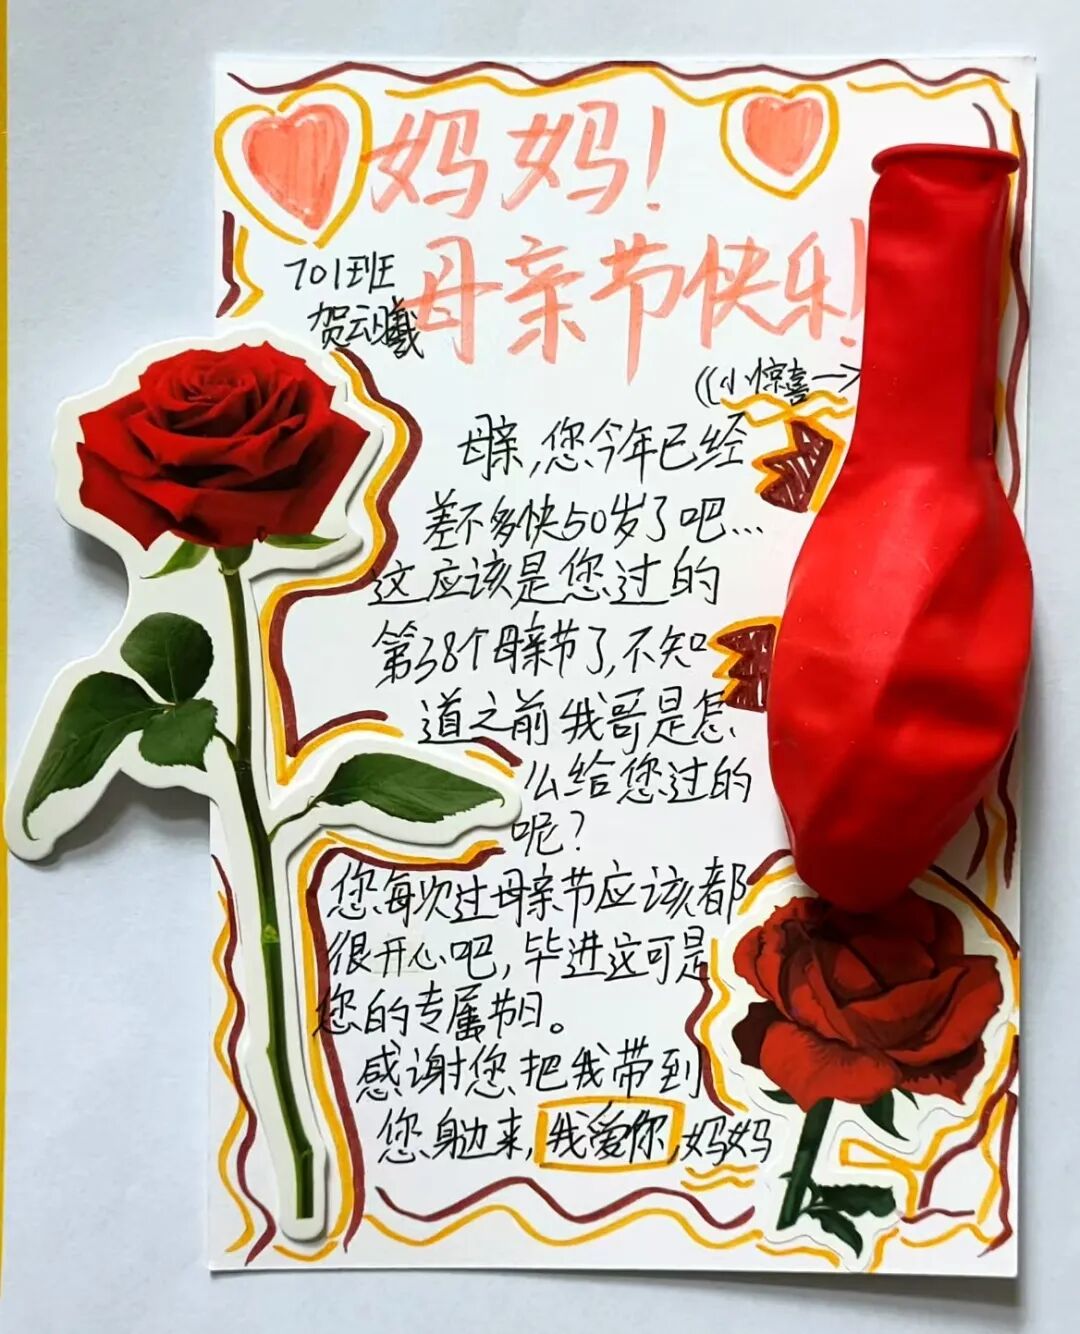 妈妈！
母亲节快乐！
701班
贺云曦
((小惊喜→
母亲，您今年已经
差不多快50岁了吧…
这应该是您过的
第38个母亲节了，不知
道之前我哥是怎
么给您过的
呢？
您每次过母亲节应该都
很开心吧，毕进这可是
您的专属节日。
感谢您把我带到
您身边来，我爱你，妈妈